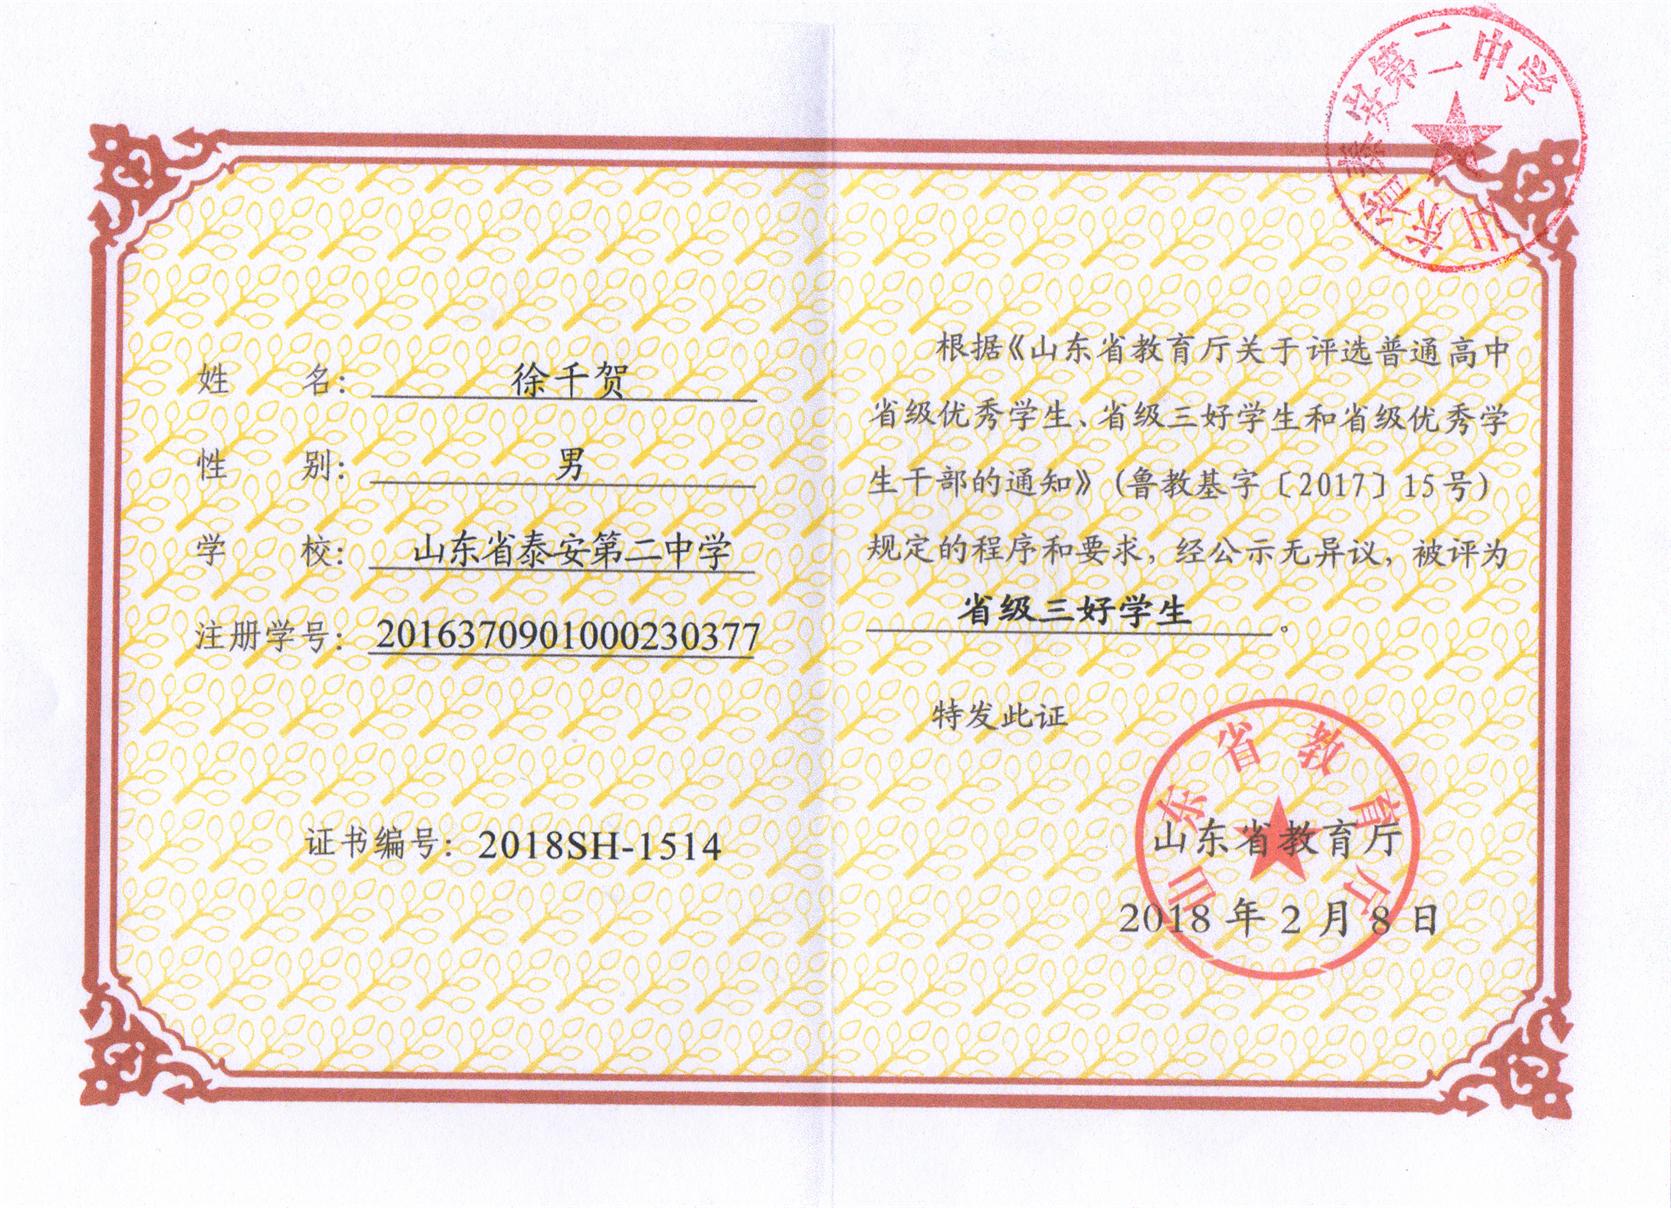 山东省泰安第二中学
姓名：徐千贺
性别：男
学校：山东省泰安第二中学
注册学号：2016370901000230377
证书编号：2018SH-1514
根据《山东省教育厅关于评选普通高中
省级优秀学生、省级三好学生和省级优秀学
生干部的通知》（鲁教基字〔2017〕15号）
规定的程序和要求，经公示无异议，被评为
省级三好学生。
特发此证
山东省教育厅
山东省教育厅
2018年2月8日